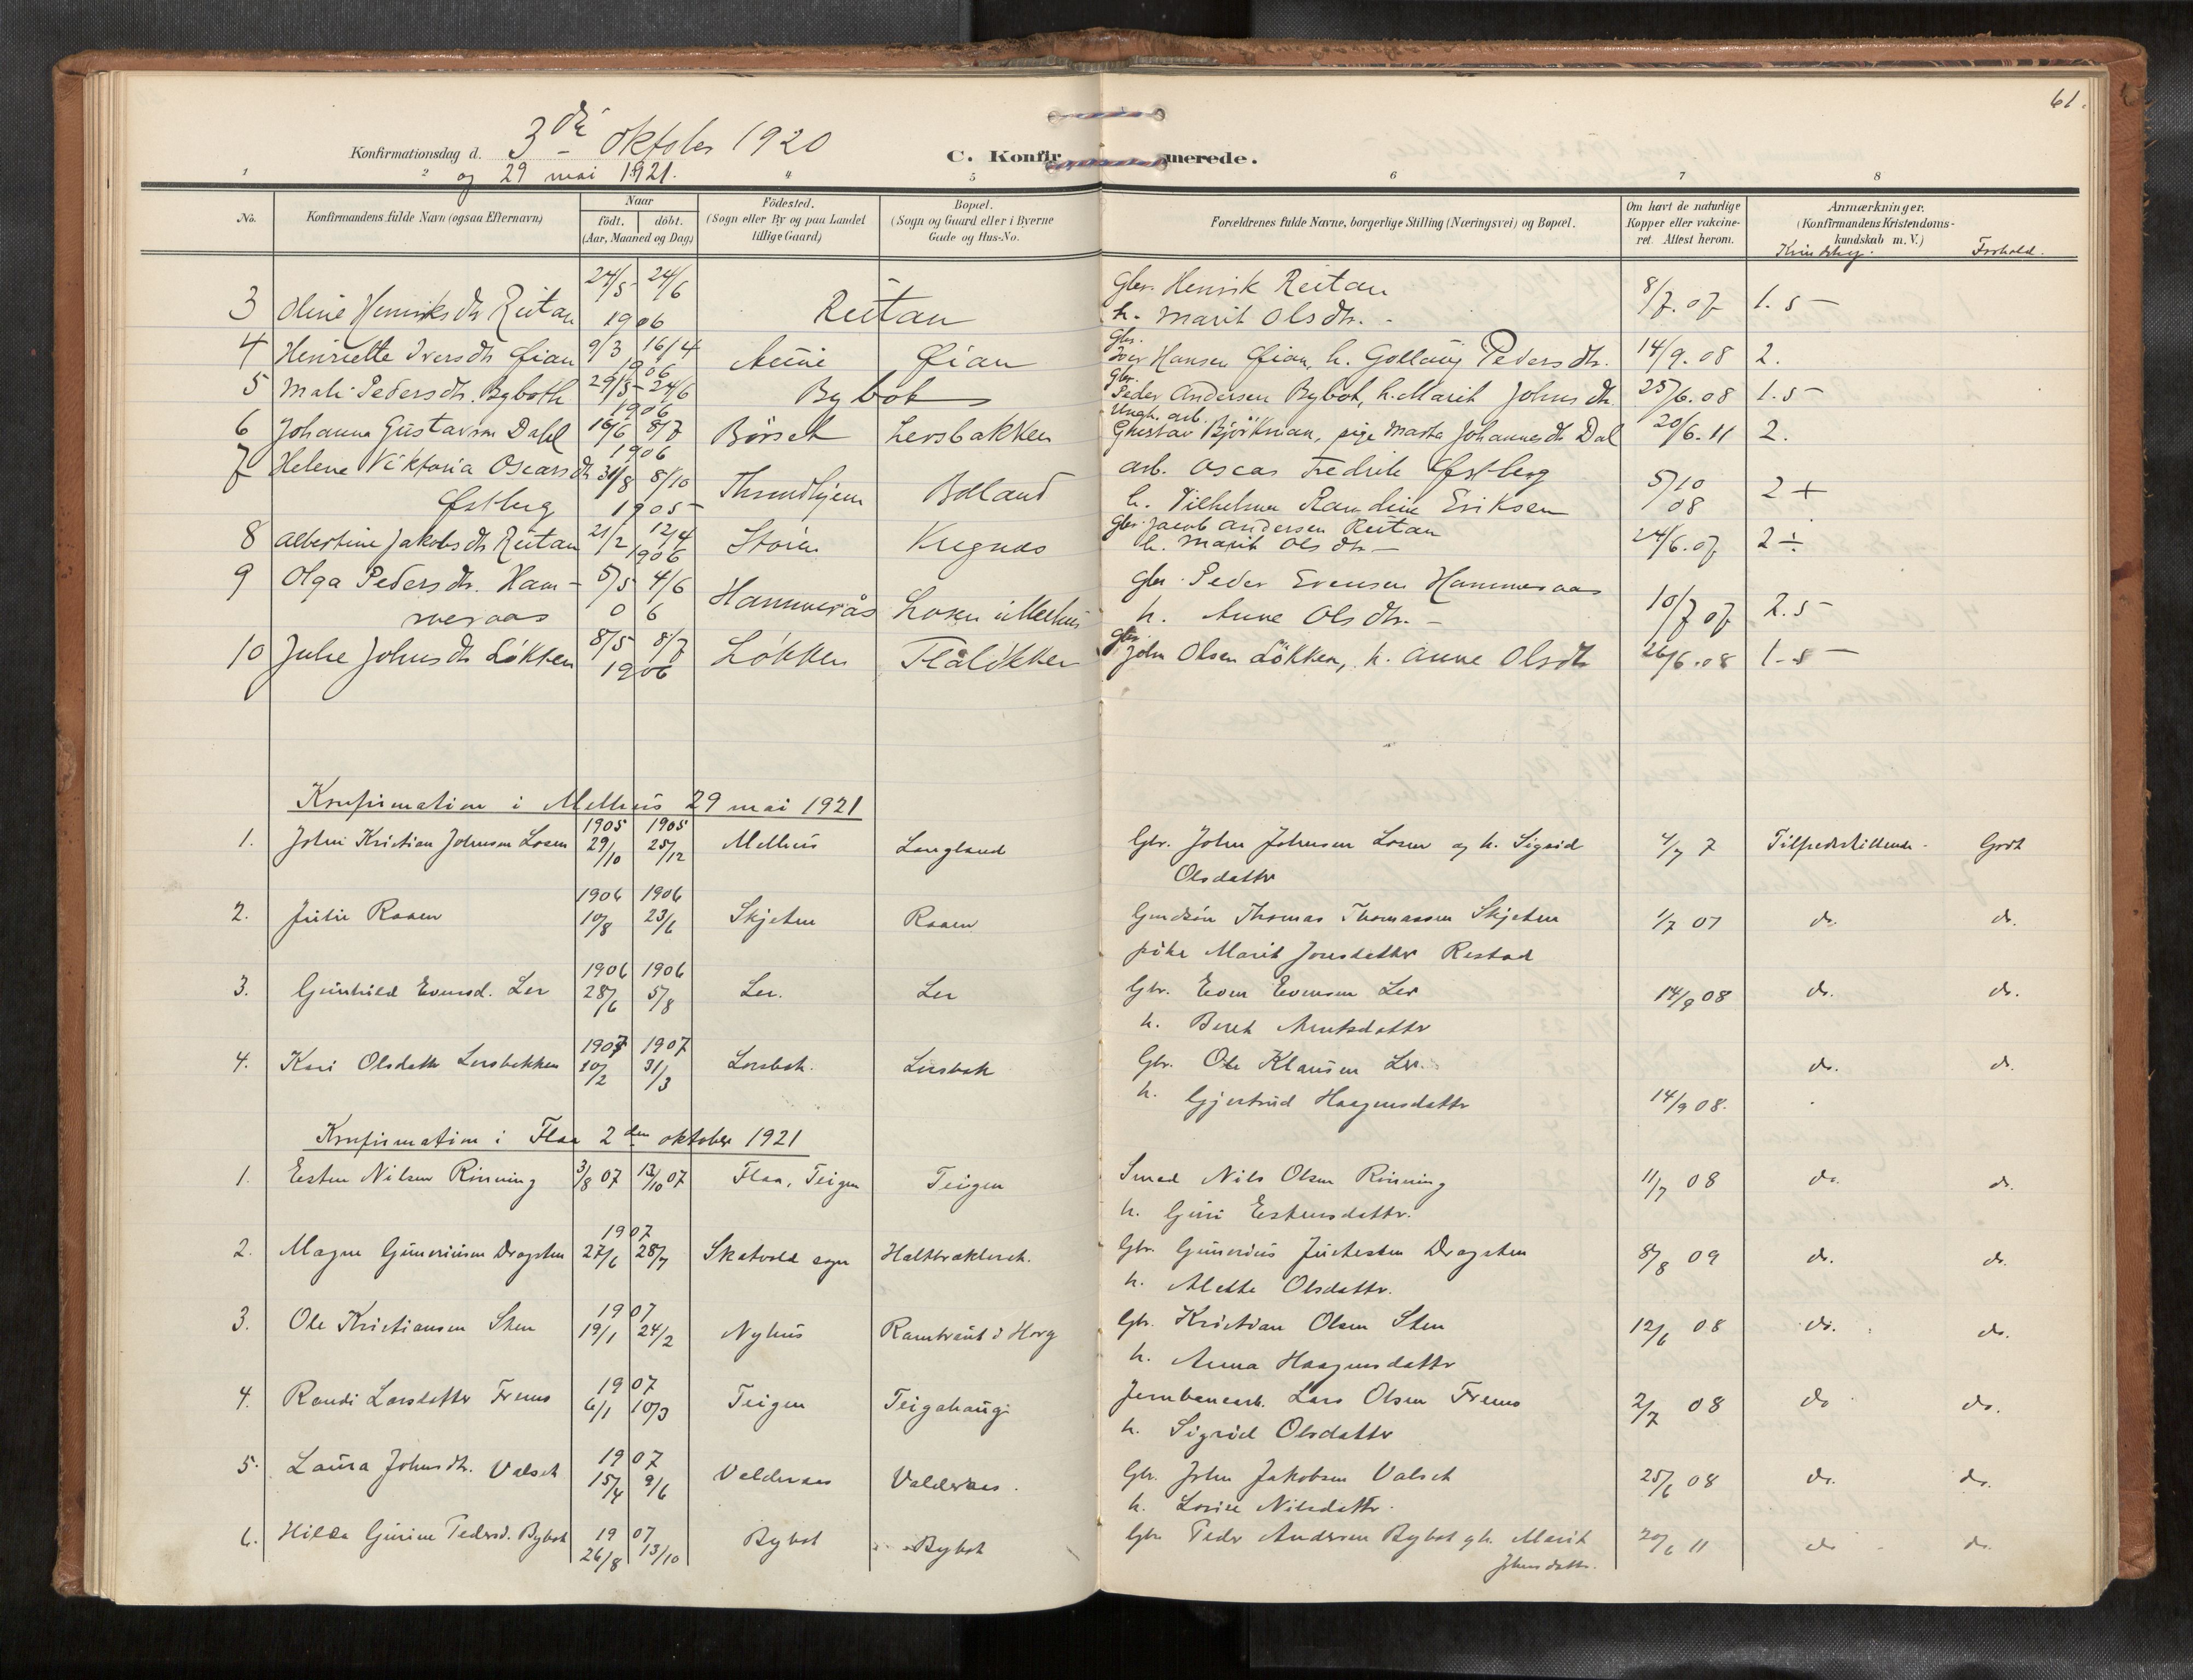 61.
Konfirmationsdag d. 3die oktober 1920
og 29 mai 1921.
C. Konfirmerede.
1 2 3 4 5 6 7 8
No. Konfirmandens fulde Navn (ogsaa Efternavn) Naar födt. döbt. (Aar, Maaned og Dag) Födested. (Sogn eller By og paa Landet tillige Gaard) Bopæl. (Sogn og Gaard eller i Byerne Gade og Hus-No. Forældrenes fulde Navne, borgerlige Stilling (Næringsvei) og Bopæl. Om havt de naturlige Kopper eller vakcineret. Attest herom. Anmærkninger. (Konfirmandens Kristendomskundskab m. V.)
Kundskap. Forhold.
24/5 24/6 Gbr. Henrik Reitan
3 Oline Henriksdtr Reitan 1906 Reitan h. Marit Olsdtr. - 8/7.07 1.5
4 Henriette Iversdtr Øian 9/3 16/4 1906 Øian Gbr. Iver Hansen Øian, h. Gollaug Pedersdtr. 14/9.08 2.
5 Mali Pedersdtr. Byboth 29/5 24/6 1906 Bybot Gbr. Peder Andersen Bybot, h. Marit Johnsdtr. 25/6.08 1.5
6 Johanna Gustavsen Dahl 16/6 8/7 1906 Børset Lersbakken Ungk. arb. Gustav Björkman, pige Marta Johannesdtr Dal 20/6.11 2.
7 Helene Viktoria Oscarsdtr 31/8 8/10 Throndhjem Boland arb. Oscar Fredrik Østberg 5/10 08 2+
Østberg 1905 h. Vilhelmine Randine Eriksen
8 Albertine Jakobsdtr Reitan 21/2 12/4 1906 Støren Kregnes Gbr. Jacob Andersen Reitan 24/6.07 2÷
h. Marit Olsdtr. -
9 Olga Pedersdtr. Ham- 5/5 4/6 Hammerås Losen i Melhus gbr. Peder Evensen Hammeraas 10/7 07 2.5
meraas 0 6 h. Anne Olsdtr. -
10 Julie Johnsdtr Løkken 8/5 8/7 1906 Løkken Flåløkken gbr. John Olsen Løkken, h. Anne Olsdtr 26/6.08 1-5
Konfirmation i Melhus 29 mai 1921
1. John Kristian Johnsen Losen 1905 29/10 1905 25/12 Melhus Langland Gbr. John Johnsen Losen og h. Sigrid 4/7 7 Tilfredsstillende. Godt
Olsdatter
2. Julie Raaen 1906 10/8 1906 23/6 Skjetne Raaen Gaardsön Thomas Thomassen Skjetne 1/7 07 do. do.
pike Marit Jonsdatter Restad
3. Gunhild Evensd. Ler 1906 28/6 1906 5/8 Ler. Ler Gbr. Even Evensen Ler 14/9 08 do. do.
h. Beret Arntsdatter
4. Kari Olsdatter Lersbakken 1907 10/2 1907 31/3 Lersbak. Lersbak Gbr. Ole Klausen Ler. do. do.
h. Gjertrud Haagensdatter 14/9 08.
Konfirmation i Flaa 2den oktober 1921
1. Esten Nilsen Rinning 3/8 07 13/10 07 Flaa, Teigen Teigen Smed Nils Olsen Rinning 11/7 08 do. do.
h. Guri Estensdatter.
2. Magne Gunneriusen Dragsten 1907 27/6 28/7 Skatvold sogn Gbr. Gunerius Dragsten 8/8 09 do. do.
h. Alette Olsdatter.
3. Ole Kristiansen Sten 1907 19/1 24/2 Nyhus Ramtraut i Horg Gbr. Kristian Olsen Sten 12/6 08 do. do.
h. Anna Haagensdatter
4. Randi Larsdatter Fremo 1907 6/1 10/3 Teigen Teigahaug Jernbanearb. Lars Olsen Fremo 2/7 08 do do.
h. Sigrid Olsdatter
5. Laura Johnsdtr. Valset 1907 15/4 9/6 Valderaas Valderaas. Gbr. John Jakobsen Valset 25/6 08 do. do.
h. Lovise Nilsdatter.
6. Hilda Gurine Pedersd. Bybot 1907 26/8 13/10 Bybot Bybot Gbr. Peder Andersen Bybot og h. Marit 20/6 11 do do.
Johnsdatter.